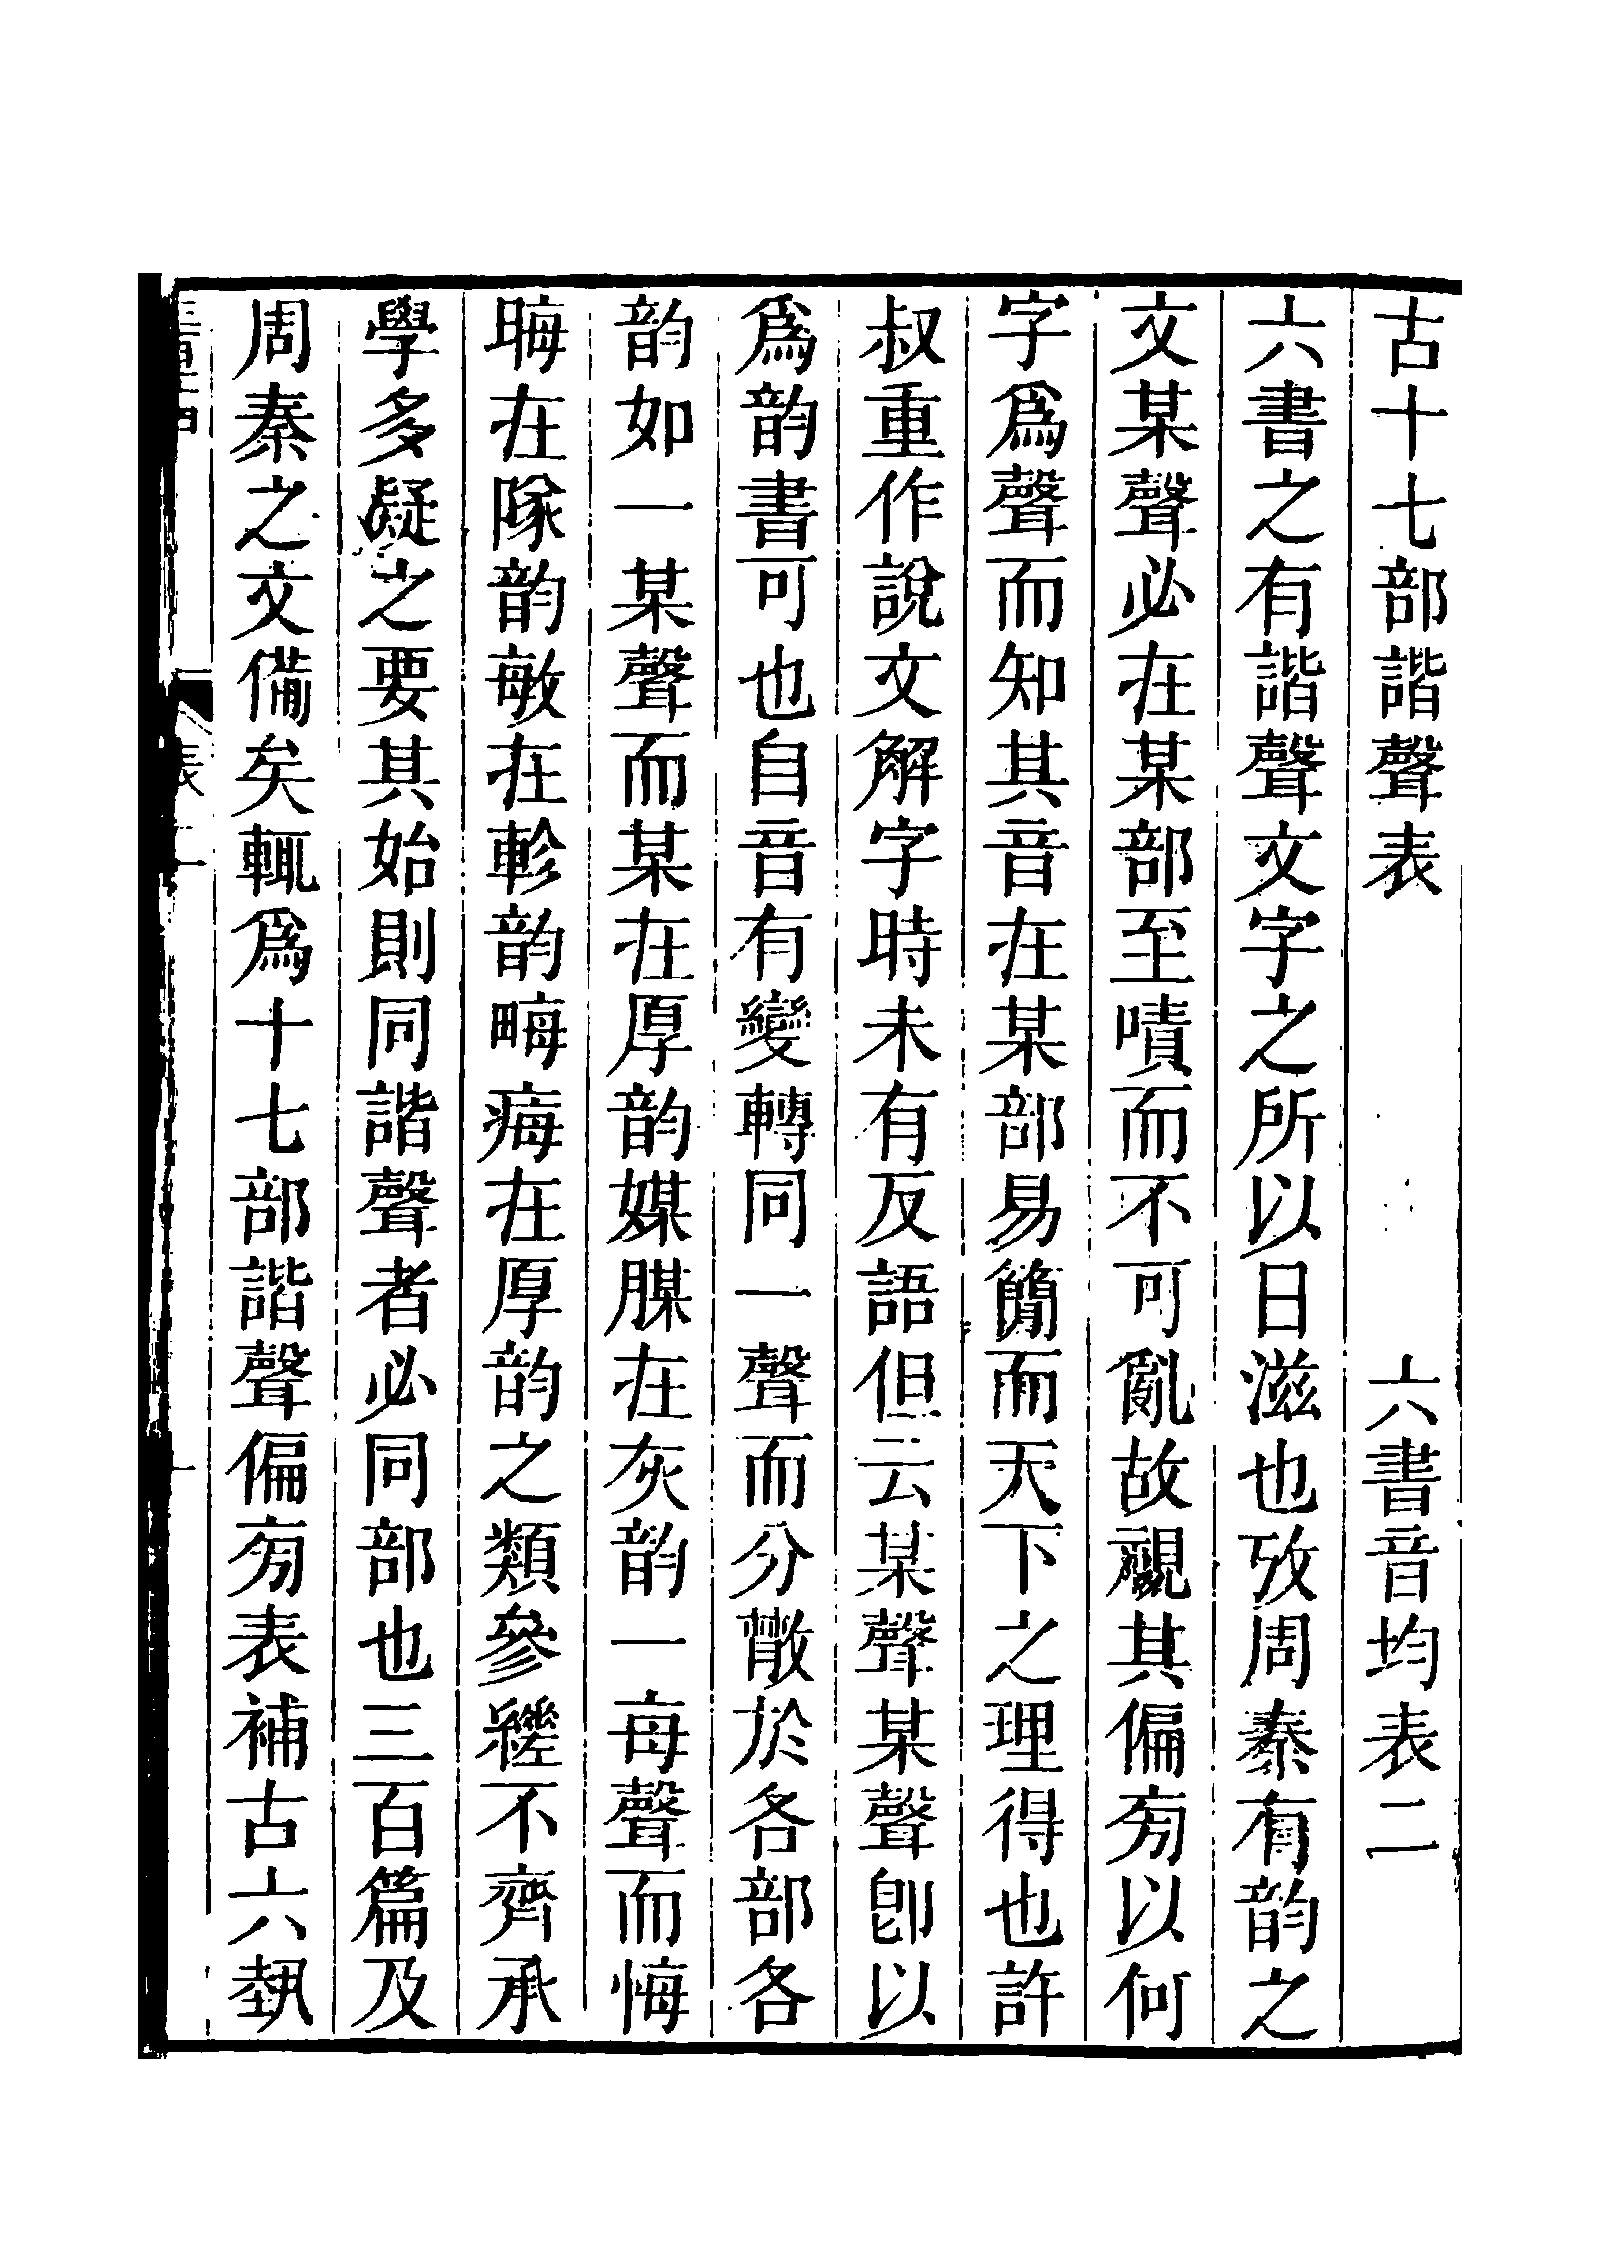 古十七部諧聲表　六書音均表二
六書之有諧聲文字之所以日滋也攷周秦有韵之
文某聲必在某部至嘖而不可亂故覛其偏㫄以何
字爲聲而知其音在某部易簡而天下之理得也許
叔重作說文解字時未有反語但云某聲某聲卽以
爲韵書可也自音有變轉同一聲而分㪚於各部各
韵如一某聲而某在厚韵媒腜在灰韵一每聲而悔
晦在隊韵敏在軫韵畮痗在厚韵之類參縒不齊承
學多疑之要其始則同諧聲者必同部也三百篇及
周秦之文備矣輒爲十七部諧聲偏㫄表補古六埶
表二
一